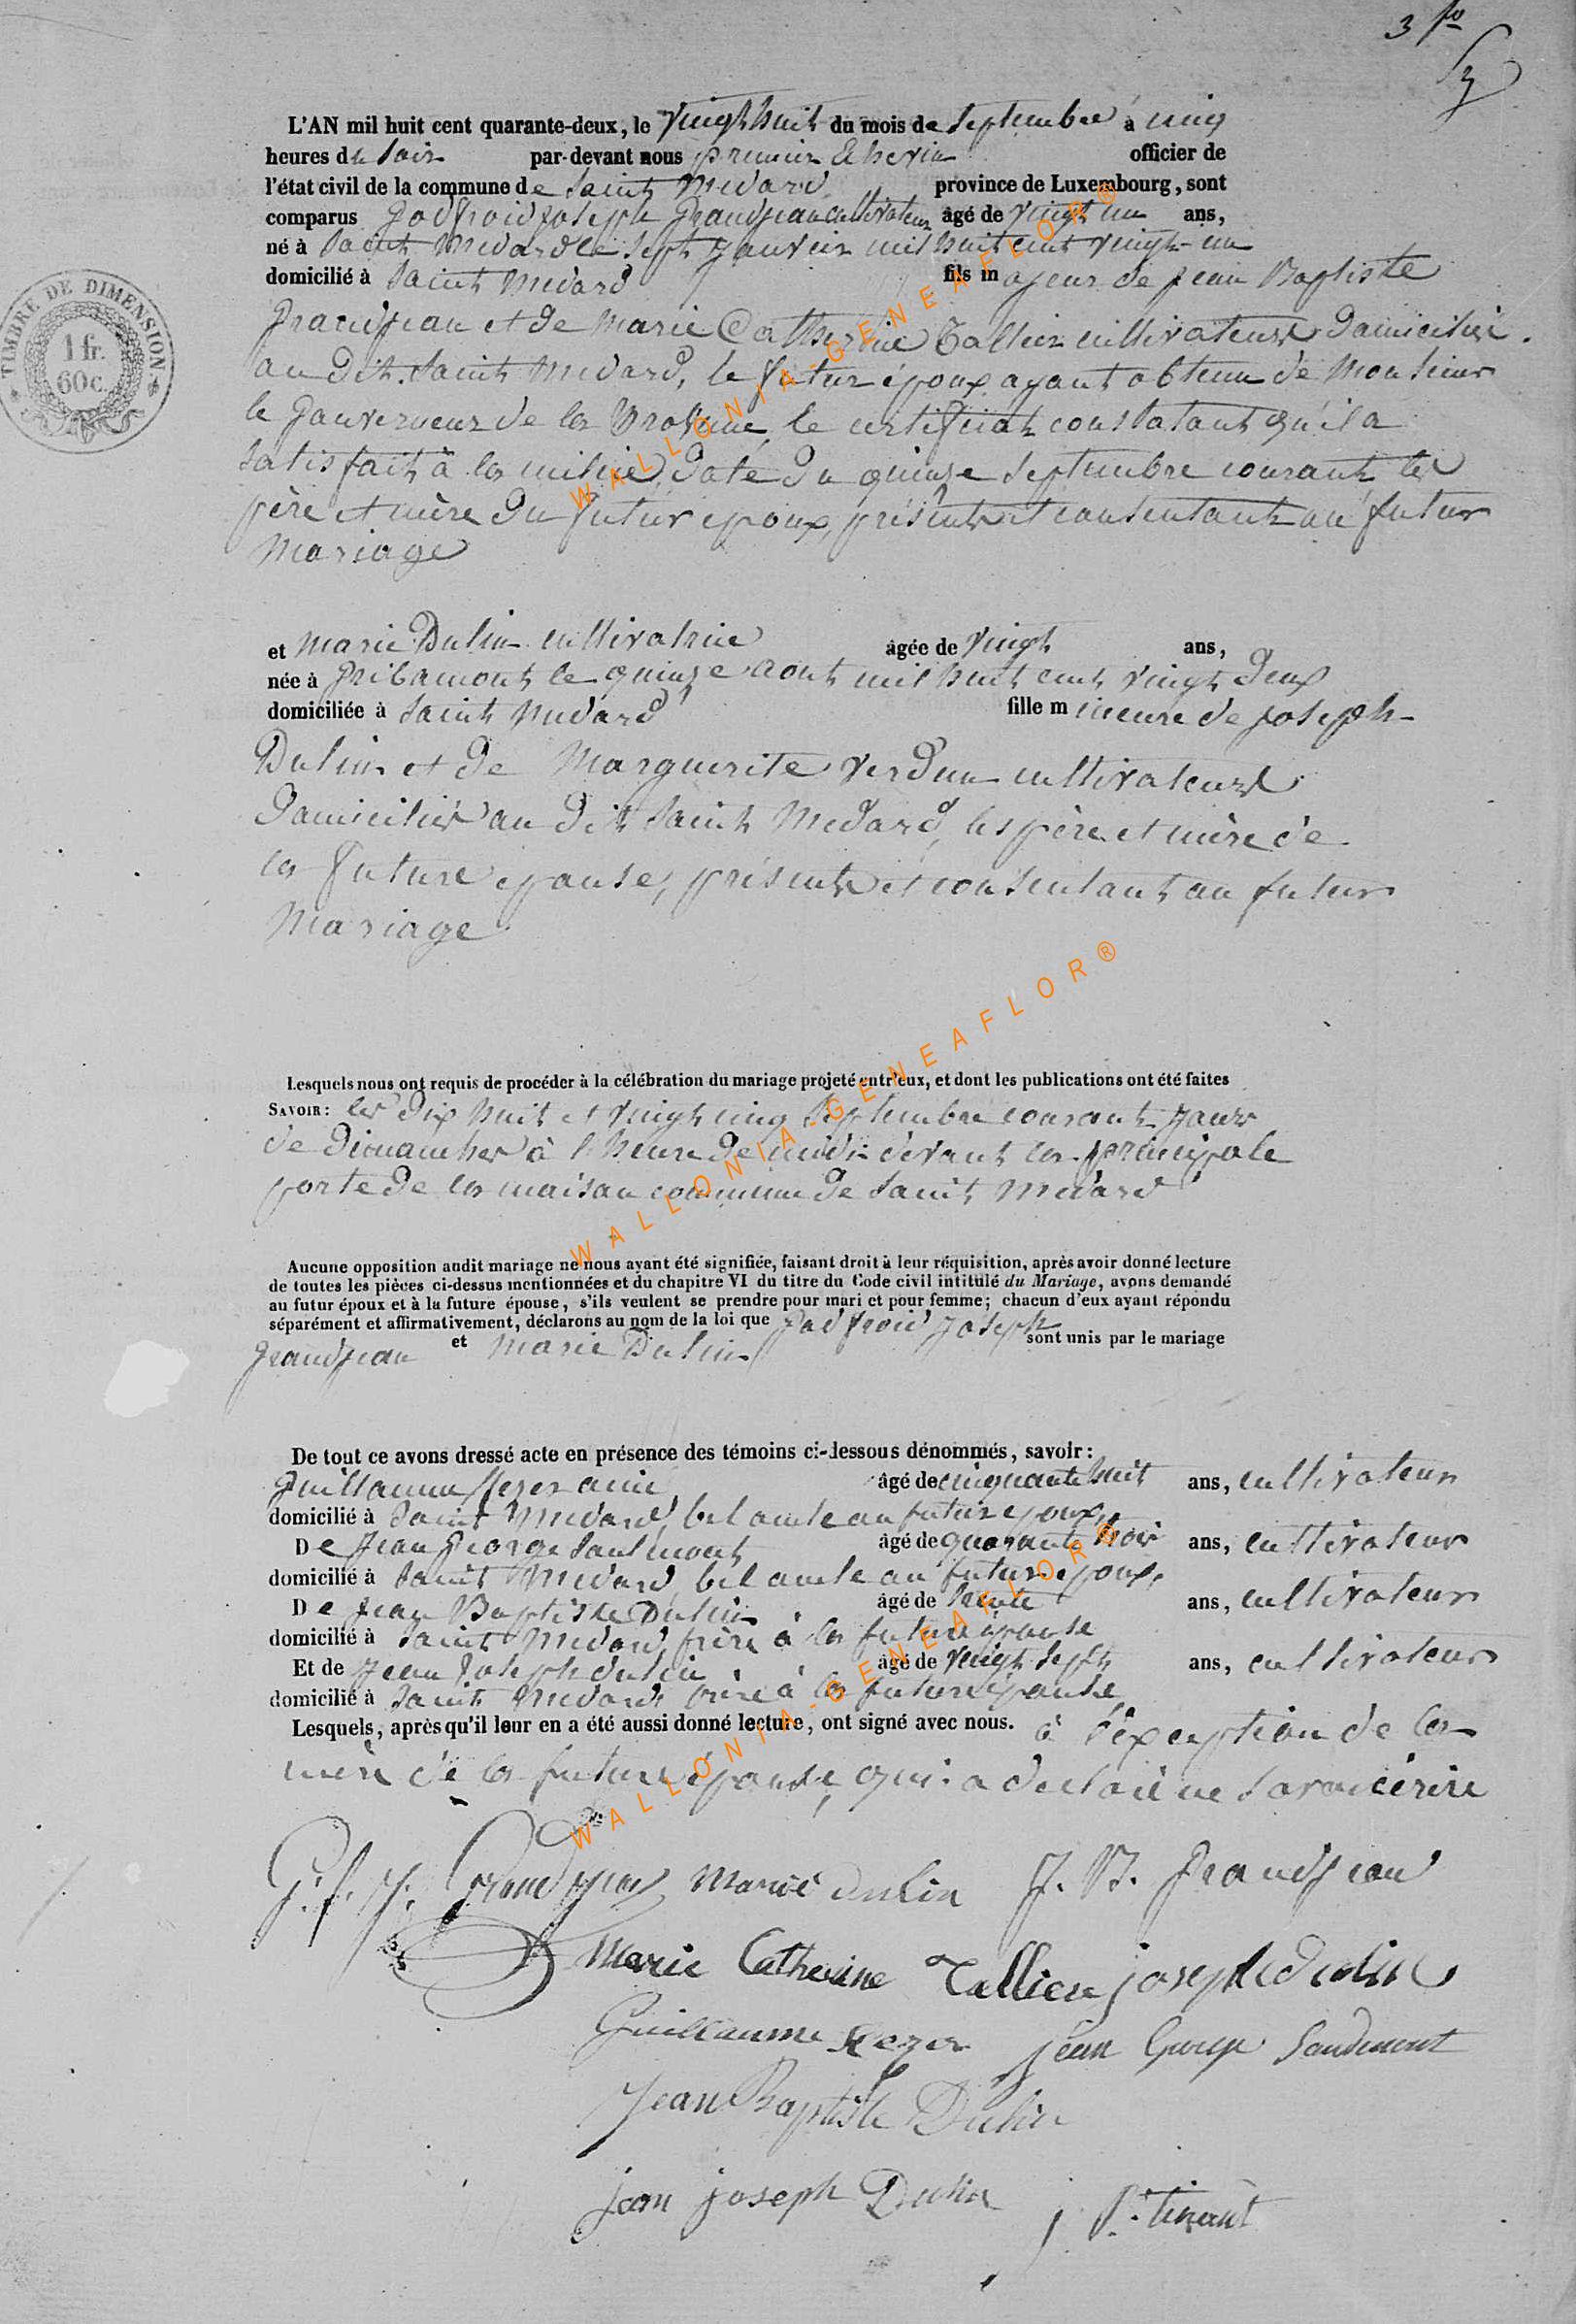 3 fo
L'AN mil huit cent quarante-deux, le vingt huit du mois de septembre à cinq
heures du soir par-devant nous premier Echevin officier de
l'état civil de la commune de Saint Médard province de Luxembourg, sont
comparus Godfroid Joseph Grandjean cultivateur âgé de vingt un ans,
né à Saint Médard le sept janvier mil huit cent vingt-un
domicilié à Saint Médard fils majeur de Jean Baptiste
Grandjean et de Marie Catherine Tallier cultivateurs domiciliés
au dit Saint Médard, le futur époux ayant obtenu de Monsieur
le Gouverneur de la Province, le certificat constatant qu'il a
satisfait à la milice, daté du quinze septembre courant les
père et mère du futur époux, présents et consentant au futur
Mariage
et Marie Dulin cultivatrice âgée de vingt ans,
née à Gribamont le quinze aout mil huit cent vingt deux
domiciliée à Saint Médard fille mineure de Joseph
Dulin et de Marguerite Verdun cultivateurs
domiciliés au dit Saint Médard, les père et mère de
la future épouse, présents et consentant au futur
Mariage
Lesquels nous ont requis de procéder à la célébration du mariage projeté entr'eux, et dont les publications ont été faites
SAVOIR: les dix huit et vingt cinq Septembre courant jours
de dimanches à l'heure de midi devant la principale
porte de la maison commune de Saint Médard
Aucune opposition audit mariage ne nous ayant été signifiée, faisant droit à leur réquisition, après avoir donné lecture
de toutes les pièces ci-dessus mentionnées et du chapitre VI du titre du Code civil intitulé du Mariage, avons demandé
au futur époux et à la future épouse, s'ils veulent se prendre pour mari et pour femme; chacun d'eux ayant répondu
séparément et affirmativement, déclarons au nom de la loi que Godfroid Joseph
Grandjean et Marie Dulin sont unis par le mariage
De tout ce avons dressé acte en présence des témoins ci-dessous dénommés, savoir:
Guillaume âgé de cinquante huit ans, cultivateur
domicilié à Saint Médard, bel oncle au futur époux,
De Jean George Saudmont âgé de quarante trois ans, cultivateur
domicilié à Saint Médard, bel oncle au futur époux,
De Jean Baptiste Dulin âgé de trente ans, cultivateur
domicilié à Saint Médard, frère à la future épouse
Et de Jean Joseph Dulin âgé de vingt sept ans, cultivateur
domicilié à Saint Médard frère à la future épouse
Lesquels, après qu'il leur en a été aussi donné lecture, ont signé avec nous. à l'exception de la
mère de la future épouse, qui a déclaré ne savoir écrire
G. f. j. Grandjean Marie Dulin J. B. Grandjean
Marie Catherine Tallier joseph dulin
Guillaume jean George Saudmont
Jean Baptiste Dulin
jean joseph Dulin
j P. tinant
TIMBRE DE DIMENSION
1 fr.
60 c.
WALLONIA-GENEAFLOR®
WALLONIA-GENEAFLOR®
WALLONIA-GENEAFLOR®